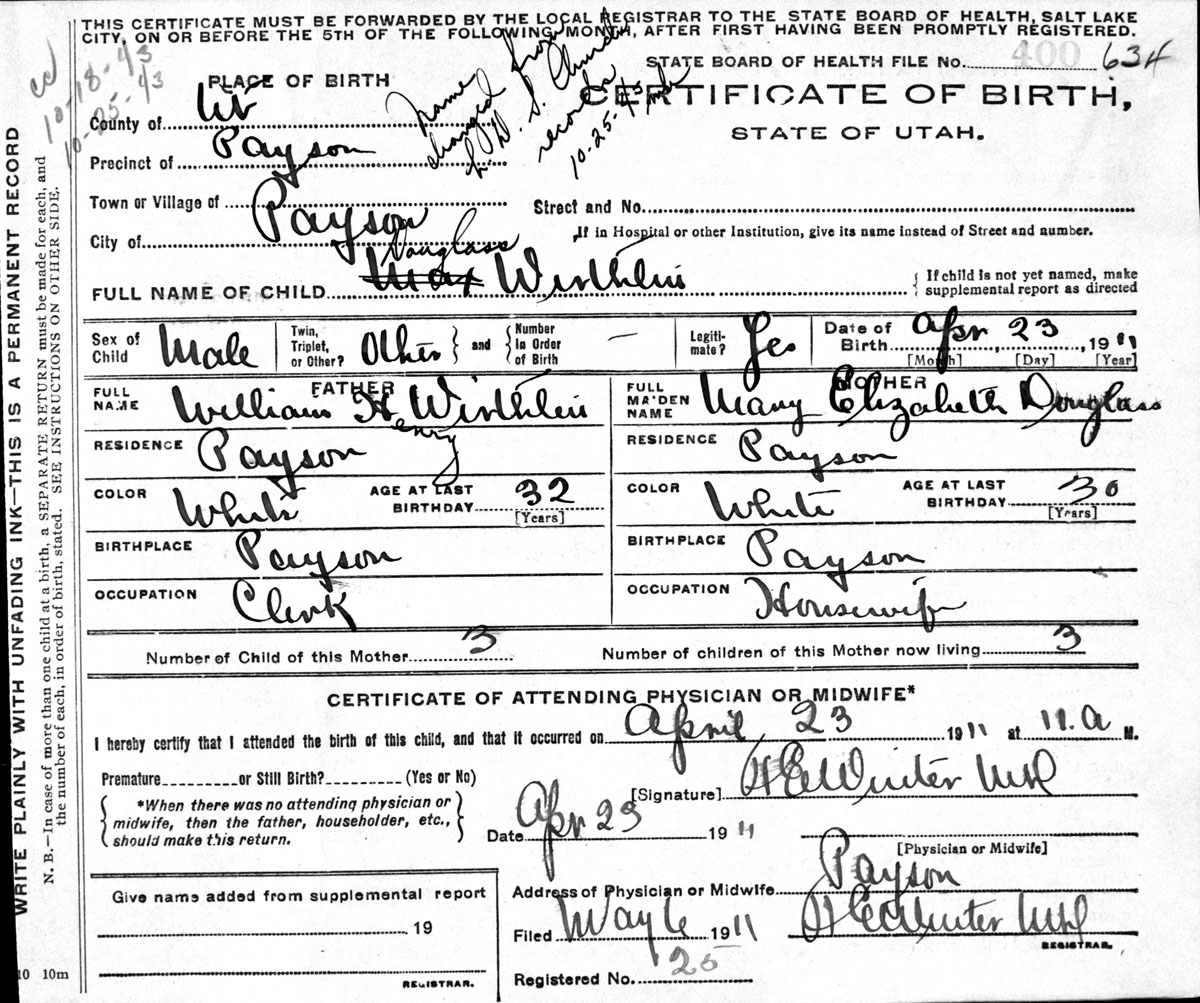 THIS CERTIFICATE MUST BE FORWARDED BY THE LOCAL REGISTRAR TO THE STATE BOARD OF HEALTH, SALT LAKE
CITY, ON OR BEFORE THE 5TH OF THE FOLLOWING MONTH, AFTER FIRST HAVING BEEN PROMPTLY REGISTERED.
STATE BOARD OF HEALTH FILE No. 400 634
cc
10-18-43
10-25-43
Name from
changed L. D. S. Church
records
10-25-43
PLACE OF BIRTH
CERTIFICATE OF BIRTH,
STATE OF UTAH.
County of Ut
Precinct of Payson
Town or Village of
Street and No.
City of Payson
If in Hospital or other Institution, give its name instead of Street and number.
Douglass
FULL NAME OF CHILD Max Wirthlin
If child is not yet named, make
supplemental report as directed
Sex of Child Male
Twin, Triplet, or Other? Other and Number In Order of Birth —
Legitimate? Yes
Date of Birth Apr 23, 1911
[Month] [Day] [Year]
FATHER
FULL NAME William H Wirthlin
Henry
RESIDENCE Payson
COLOR White AGE AT LAST BIRTHDAY 32
[Years]
BIRTHPLACE Payson
OCCUPATION Clerk
MOTHER
FULL MAIDEN NAME Mary Elizabeth Douglass
RESIDENCE Payson
COLOR White AGE AT LAST BIRTHDAY 30
[Years]
BIRTHPLACE Payson
OCCUPATION Housewife
Number of Child of this Mother 3 Number of children of this Mother now living 3
CERTIFICATE OF ATTENDING PHYSICIAN OR MIDWIFE*
I hereby certify that I attended the birth of this child, and that it occurred on April 23 1911 at 11.a M.
Premature or Still Birth? (Yes or No)
[Signature] H E Winter MD
*When there was no attending physician or
midwife, then the father, householder, etc.,
should make this return.
Date Apr 23 1911
[Physician or Midwife]
Address of Physician or Midwife Payson
Filed May 6 1911 H E Winter MD
REGISTRAR.
Registered No. 25
Give name added from supplemental report
19
REGISTRAR.
10 10m
WRITE PLAINLY WITH UNFADING INK—THIS IS A PERMANENT RECORD
N. B.—In case of more than one child at a birth, a SEPARATE RETURN must be made for each, and
the number of each, in order of birth, stated. SEE INSTRUCTIONS ON OTHER SIDE.